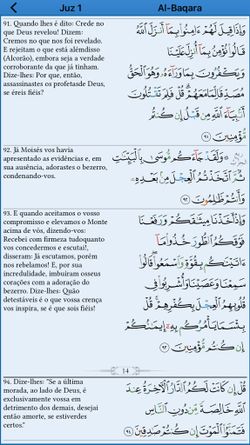 Juz 1
Al-Baqara
91. Quando lhes é dito: Crede no
que Deus revelou! Dizem:
Cremos no que nos foi revelado.
E rejeitam o que está alémdisso
(Alcorão), embora seja a verdade
corroborante da que já tinham.
Dize-lhes: Por que, então,
assassinastes os profetasde Deus,
se éreis fiéis?
وَإِذَا قِيلَ لَهُمْ ءَامِنُوا۟ بِمَآ أَنزَلَ ٱللَّهُ
قَالُوا۟ نُؤْمِنُ بِمَآ أُنزِلَ عَلَيْنَا
وَيَكْفُرُونَ بِمَا وَرَآءَهُۥ وَهُوَ ٱلْحَقُّ
مُصَدِّقًا لِّمَا مَعَهُمْ قُلْ فَلِمَ تَقْتُلُونَ
أَنۢبِيَآءَ ٱللَّهِ مِن قَبْلُ إِن كُنتُم
مُّؤْمِنِينَ ٩١
92. Já Moisés vos havia
apresentado as evidências e, em
sua ausência, adorastes o bezerro,
condenando-vos.
وَلَقَدْ جَآءَكُم مُّوسَىٰ بِٱلْبَيِّنَٰتِ
ثُمَّ ٱتَّخَذْتُمُ ٱلْعِجْلَ مِنۢ بَعْدِهِۦ
وَأَنتُمْ ظَٰلِمُونَ ٩٢
93. E quando aceitamos o vosso
compromisso e elevamos o Monte
acima de vós, dizendo-vos:
Recebei com firmeza tudoquanto
vos concedermos e escutai!,
disseram: Já escutamos, porém
nos rebelamos! E, por sua
incredulidade, imbuíram osseus
corações com a adoração do
bezerro. Dize-lhes: Quão
detestáveis é o que vossa crença
vos inspira, se é que sois fiéis!
وَإِذْ أَخَذْنَا مِيثَٰقَكُمْ وَرَفَعْنَا
فَوْقَكُمُ ٱلطُّورَ خُذُوا۟ مَآ
ءَاتَيْنَٰكُم بِقُوَّةٍ وَٱسْمَعُوا۟ قَالُوا۟
سَمِعْنَا وَعَصَيْنَا وَأُشْرِبُوا۟ فِى
قُلُوبِهِمُ ٱلْعِجْلَ بِكُفْرِهِمْ قُلْ
بِئْسَمَا يَأْمُرُكُم بِهِۦٓ إِيمَٰنُكُمْ
إِن كُنتُم مُّؤْمِنِينَ ٩٣
14
94. Dize-lhes: "Se a última
morada, ao lado de Deus, é
exclusivamente vossa em
detrimento dos demais, desejai
então amorte, se estiverdes
certos."
قُلْ إِن كَانَتْ لَكُمُ ٱلدَّارُ ٱلْءَاخِرَةُ عِندَ
ٱللَّهِ خَالِصَةً مِّن دُونِ ٱلنَّاسِ
فَتَمَنَّوُا۟ ٱلْمَوْتَ إِن كُنتُمْ صَٰدِقِينَ ٩٤